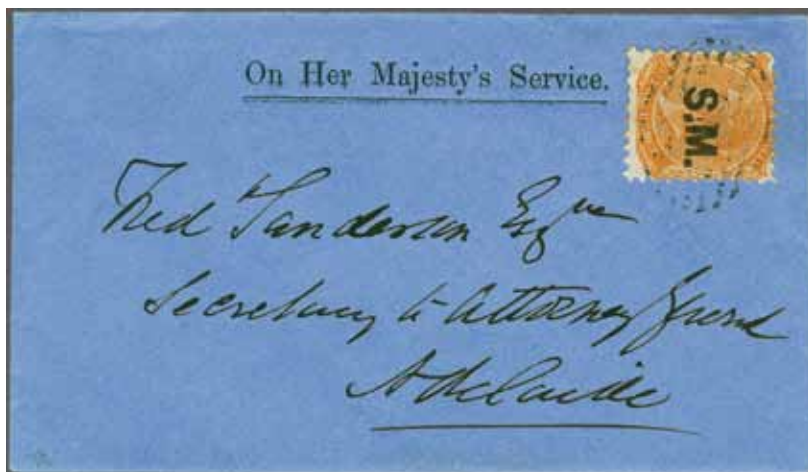 On Her Majesty's Service.
S.M.
Fred Sanderson Esqre
Secretary to Attorney General
Adelaide